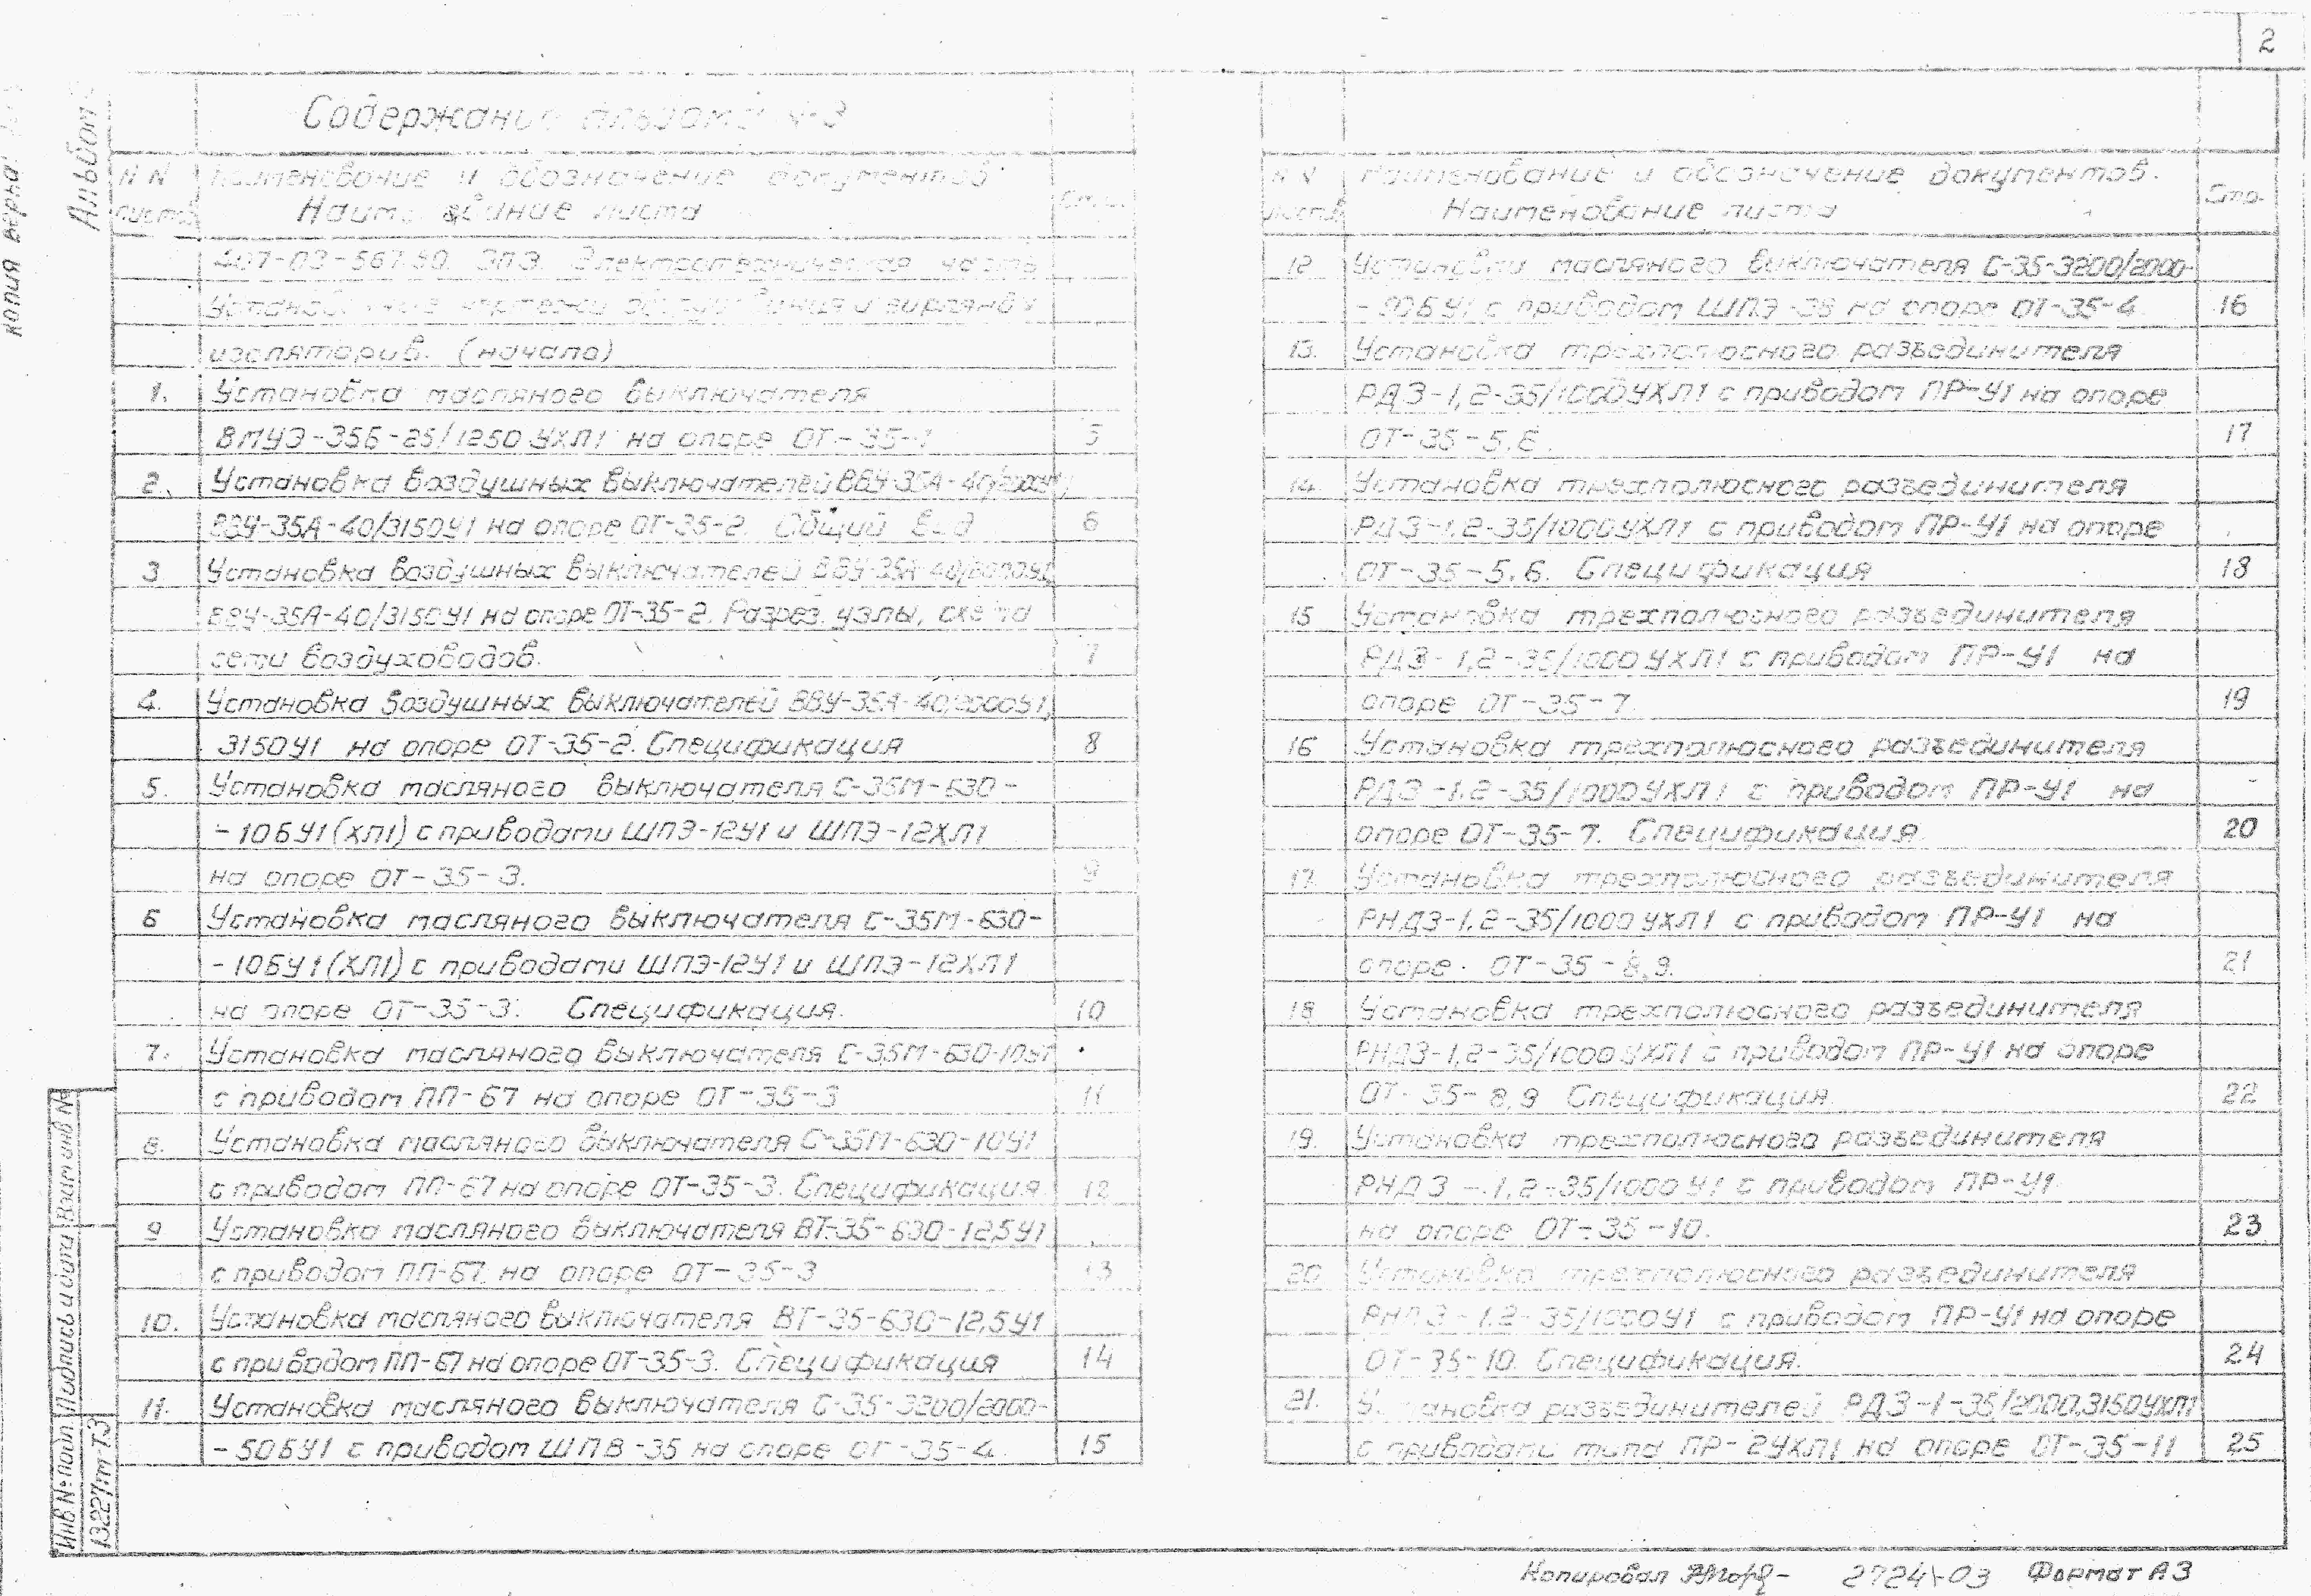 2
Содержание альбома 4-3
NN Наименование и обозначение документов
листа Наименование листа Стр.
407-03-567.90 ЭП3. Электротехническая часть
Установочные чертежи оборудования и гирлянды
изоляторов. (начало)
1. Установка масляного выключателя
ВМУЭ-35Б-25/1250 УХЛ1 на опоре ОТ-35-1 5
2. Установка воздушных выключателей ВВУ-35А-40/2000У1,
ВВУ-35А-40/3150У1 на опоре ОТ-35-2. Общий вид 6
3 Установка воздушных выключателей ВВУ-35А-40/2000У1,
ВВУ-35А-40/3150У1 на опоре ОТ-35-2. Разрез, узлы, схема
сети воздуховодов. 7
4. Установка воздушных выключателей ВВУ-35А-40/2000У1,
3150У1 на опоре ОТ-35-2. Спецификация 8
5. Установка масляного выключателя С-35М-630-
-10БУ1(ХЛ1) с приводами ШПЭ-12У1 и ШПЭ-12ХЛ1
на опоре ОТ-35-3. 9
6 Установка масляного выключателя С-35М-630-
-10БУ1(ХЛ1) с приводами ШПЭ-12У1 и ШПЭ-12ХЛ1
на опоре ОТ-35-3. Спецификация. 10
7. Установка масляного выключателя С-35М-630-10У1
с приводом ПП-67 на опоре ОТ-35-3 11
8. Установка масляного выключателя С-35М-630-10У1
с приводом ПП-67 на опоре ОТ-35-3. Спецификация 12
9 Установка масляного выключателя ВТ-35-630-12,5У1
с приводом ПП-67 на опоре ОТ-35-3 13
10. Установка масляного выключателя ВТ-35-630-12,5У1
с приводом ПП-67 на опоре ОТ-35-3. Спецификация 14
11. Установка масляного выключателя С-35-3200/2000-
-50БУ1 с приводом ШПВ-35 на опоре ОТ-35-4. 15
NN Наименование и обозначение документов.
листа Наименование листа Стр.
12 Установка масляного выключателя С-35-3200/2000-
-50БУ1 с приводом ШПЭ-38 на опоре ОТ-35-4 16
13. Установка трехполюсного разъединителя
РДЗ-1,2-35/1000УХЛ1 с приводом ПР-У1 на опоре
ОТ-35-5,6. 17
14. Установка трехполюсного разъединителя
РДЗ-1,2-35/1000УХЛ1 с приводом ПР-У1 на опоре
ОТ-35-5,6. Спецификация 18
15 Установка трехполюсного разъединителя
РДЗ-1,2-35/1000 УХЛ1 с приводом ПР-У1 на
опоре ОТ-35-7. 19
16 Установка трехполюсного разъединителя
РДЗ-1,2-35/1000УХЛ1 с приводом ПР-У1 на
опоре ОТ-35-7. Спецификация. 20
17. Установка трехполюсного разъединителя
РНДЗ-1,2-35/1000 УХЛ1 с приводом ПР-У1 на
опоре ОТ-35-8,9. 21
18 Установка трехполюсного разъединителя
РНДЗ-1,2-35/1000 УХЛ1 с приводом ПР-У1 на опоре
ОТ-35-8,9 Спецификация. 22
19. Установка трехполюсного разъединителя
РНДЗ-1,2-35/1000 У1 с приводом ПР-У1
на опоре ОТ-35-10. 23
20. Установка трехполюсного разъединителя
РНДЗ-1,2-35/1000У1 с приводом ПР-У1 на опоре
ОТ-35-10. Спецификация. 24
21. Установка разъединителей РДЗ-1-35/2000,3150УХЛ1
с приводами типа ПР-2УХЛ1 на опоре ОТ-35-11 25
копия верна:
Альбом
Взам инв №
Подпись и дата
Инв № подл
13227тм-Т3
Копировал
Формат А3